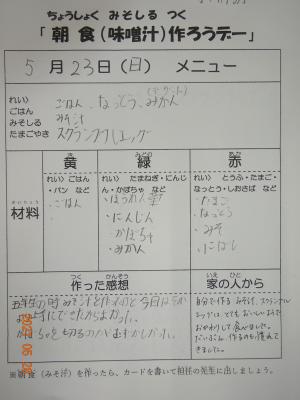 ちょうしょく みそしる つく
「 朝 食 (味噌汁) 作ろうデー」
5 月 23 日 (日) メニュー
れい)
ごはん
みそしる
たまごやき
ごはん、なっとう、みかん
(デザート)
みそ汁
スクランブルエッグ
材料
ざいりょう
黄
れい) ごはん
・パン など
・ごはん
みどり
緑
れい) たまねぎ・にんじ
ん・かぼちゃ など
・ほうれん草
・にんじん
・かぼちゃ
・みかん
あか
赤
れい) とうふ・たまご・
なっとう・しおさば など
・たまご
・なっとう
・みそ
・にぼし
つく かんそう
作った感想
かぼちゃを切るのがむずかしかった。
いえ ひと
家の人から
自分で作る みそ汁、スクランブル
エッグは、とても おいしいようで
おかわりして食べました。
だいぶん、作るのも慣れ
てきました。
※朝食(みそ汁)を作ったら、カードを書いて担任の先生に出しましょう。